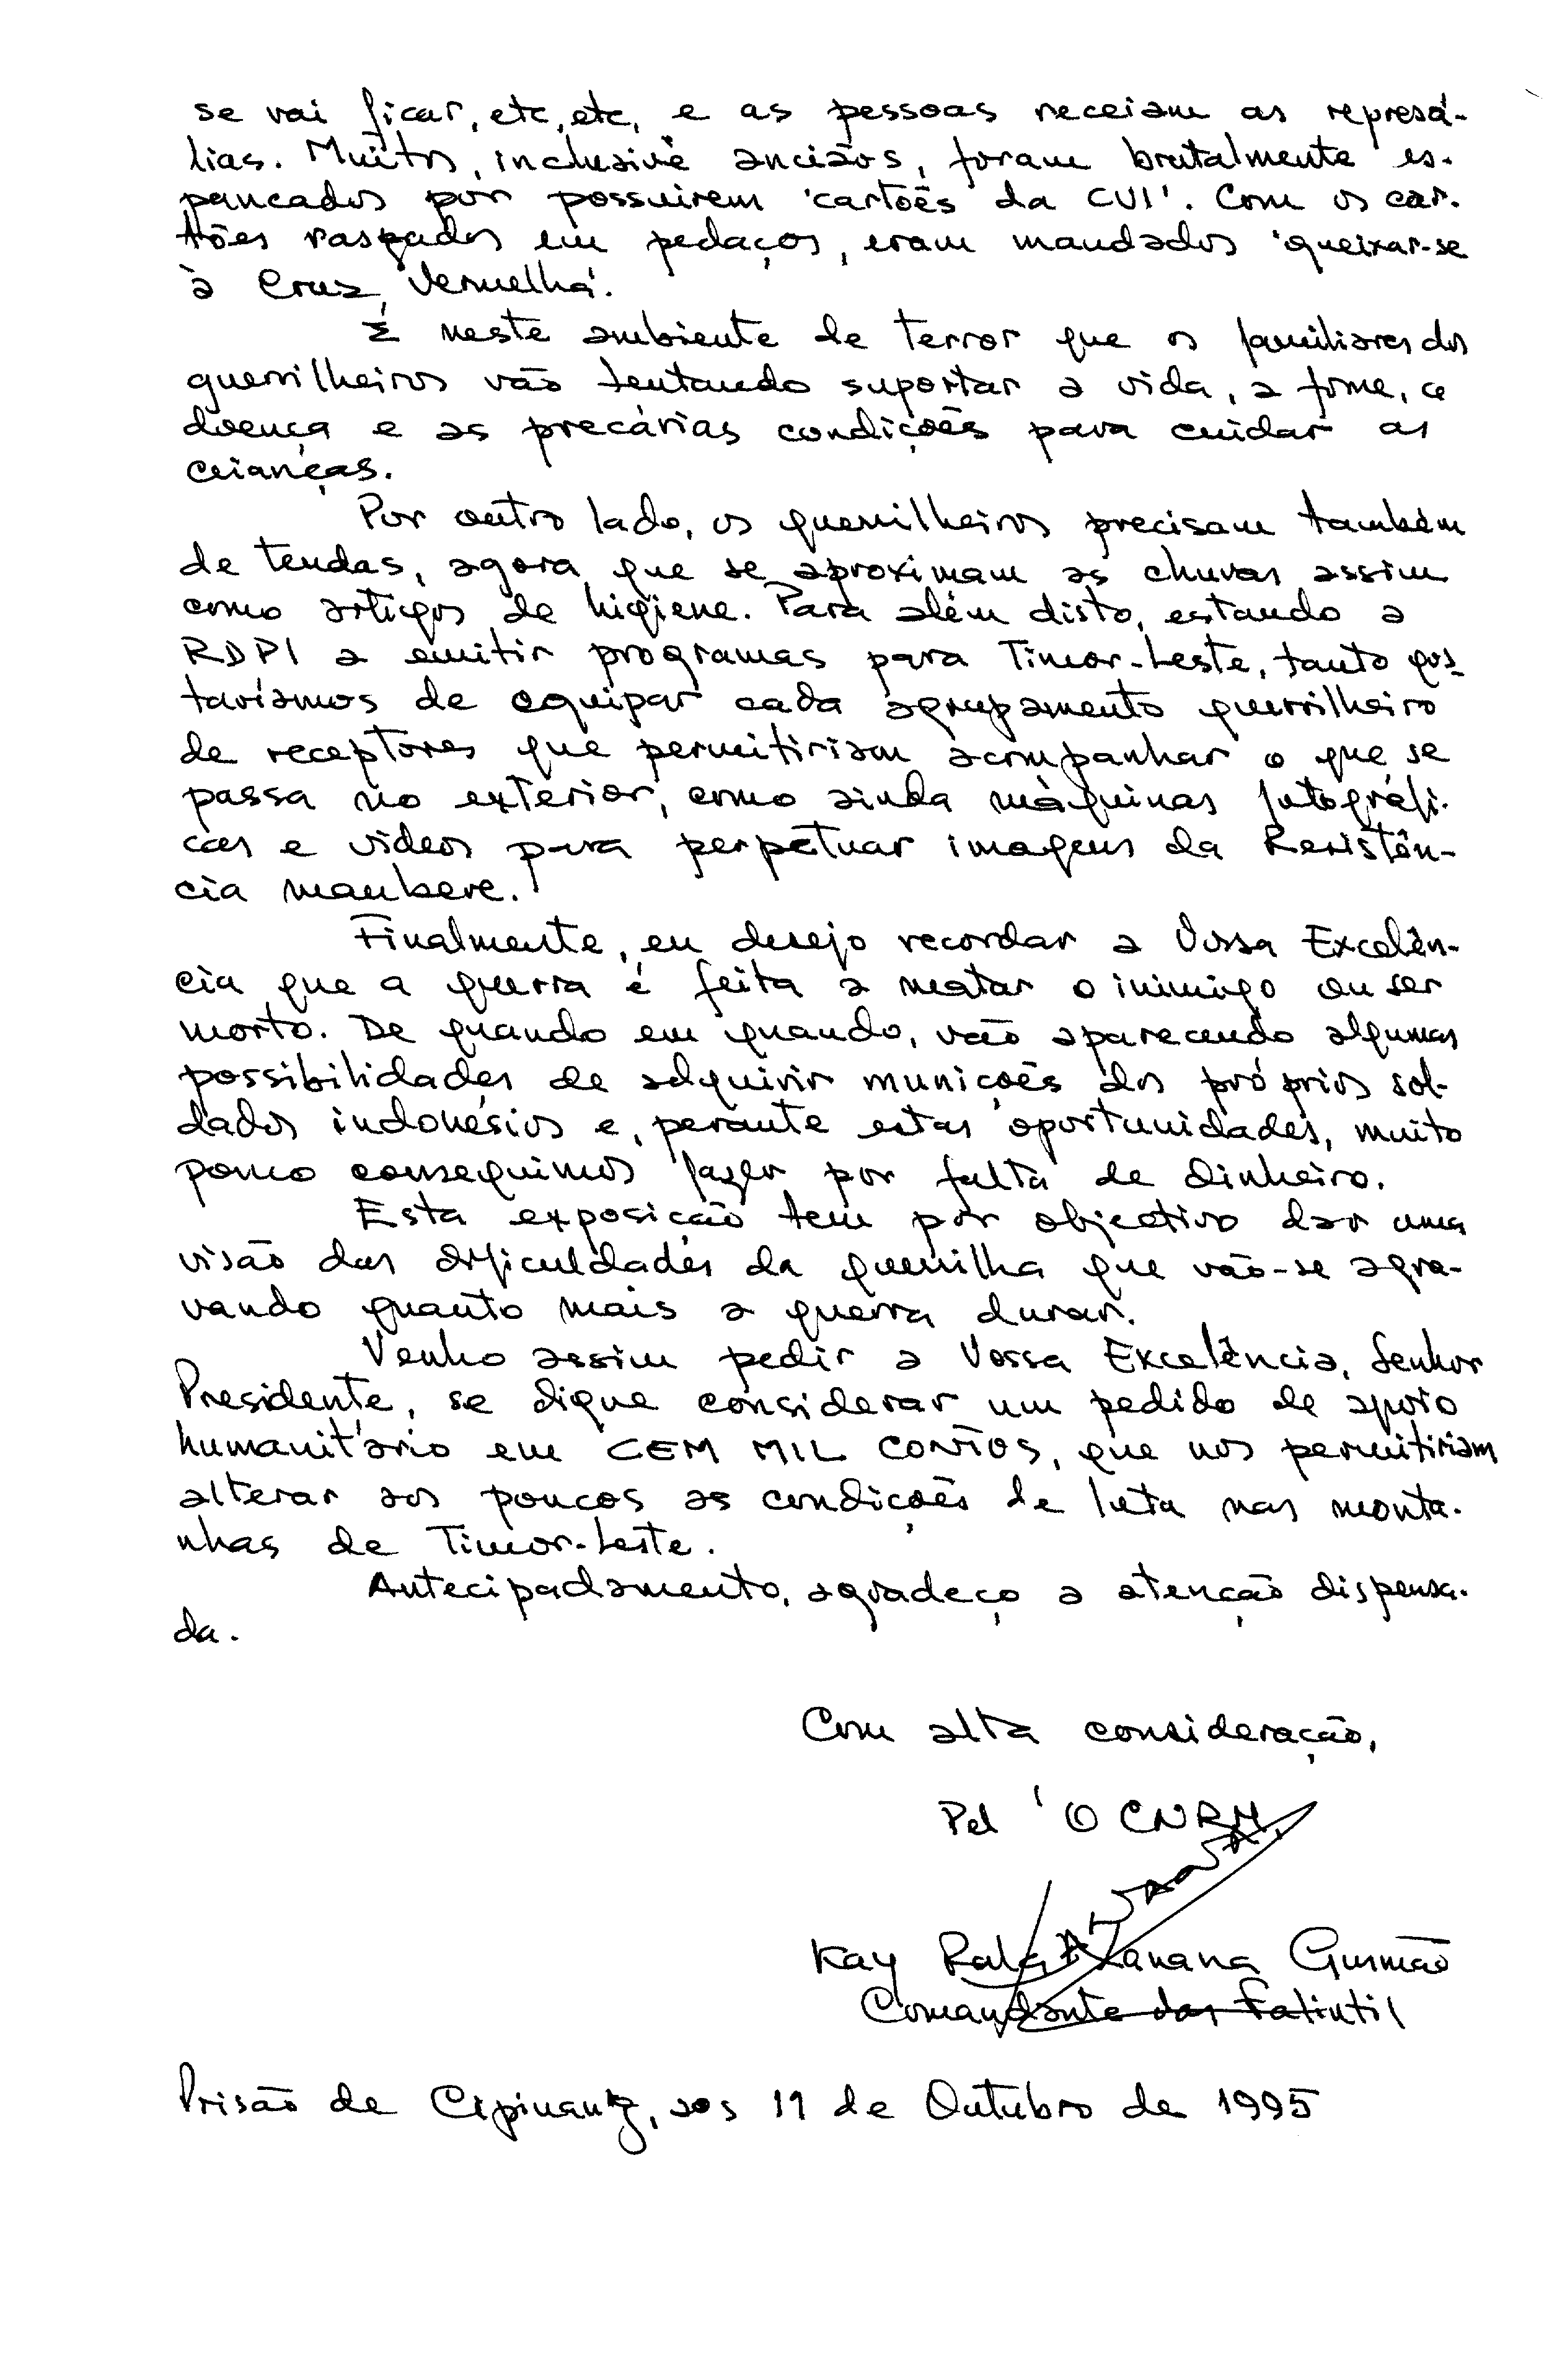 se vai ficar, etc, etc, e as pessoas receiam as represá-
lias. Muitos, inclusivé anciãos, foram brutalmente es-
pancados por possuirem 'cartões da CVI'. Com os car-
tões rasgados em pedaços, eram mandados 'queixar-se
à Cruz Vermelha'.
É neste ambiente de terror que os familiares dos
guerrilheiros vão tentando suportar a vida, a fome, a
doença e as precárias condições para cuidar as
crianças.
Por outro lado, os guerrilheiros precisam também
de tendas, agora que se aproximam as chuvas assim
como artigos de higiene. Para além disto, estando a
RDPI a emitir programas para Timor-Leste, tanto gos-
tariamos de equipar cada agrupamento guerrilheiro
de receptores que permitiriam acompanhar o que se
passa no exterior, como ainda máquinas fotográfi-
cas e videos para perpetuar imagens da Resistên-
cia maubere.
Finalmente, eu desejo recordar a Vossa Excelên-
cia que a guerra é feita a matar o inimigo ou ser
morto. De quando em quando, vão aparecendo algumas
possibilidades de adquirir munições dos próprios sol-
dados indonésios e, perante estas oportunidades, muito
pouco conseguimos fazer por falta de dinheiro.
Esta exposição tem por objectivo dar uma
visão das dificuldades da guerrilha que vão-se agra-
vando quanto mais a guerra durar.
Venho assim pedir a Vossa Excelência, Senhor
Presidente, se digne considerar um pedido de apoio
humanitário em CEM MIL CONTOS, que nos permitiriam
alterar aos poucos as condições de luta nas monta-
nhas de Timor-Leste.
Antecipadamente, agradeço a atenção dispensa-
da.
Com alta consideração,
Pel'O CNRM,
Kay Rala Xanana Gusmão
Comandante das Falintil
Prisão de Cipinang, aos 11 de Outubro de 1995